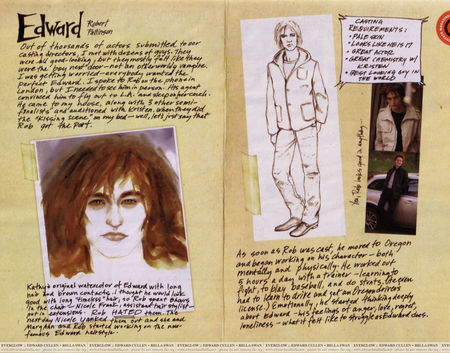 Edward Robert
Pattinson
Out of thousands of actors submitted to our
casting directors, I met with dozens of guys. They
were all good-looking, but they mostly felt like they
were the boy next door - not an otherworldly vampire.
I was getting worried - everybody wanted the
perfect Edward. I spoke to Rob on the phone in
London, but I needed to see him in person. His agent
convinced him to fly out to L.A. and sleep on her couch.
He came to my house, along with 3 other semi-
finalists and auditioned with Kristen. When they did
the "kissing scene" on my bed - well, let's just say that
Rob got the part.
Kathy's original watercolor of Edward with long
hair and brown contacts. I thought he would look
good with long "timeless" hair, so Rob spent 8 hours
in the chair - Nicole Frank, assistant hair stylist -
put in extensions. Rob HATED them. The
next day Nicole yanked them out and she and
Mary Ann and Rob started working on the now-
famous Edward hairstyle.
CASTING
REQUIREMENTS:
• PALE SKIN
• LOOKS LIKE HE IS 17
• GREAT ACTOR
• GREAT CHEMISTRY W/
KRISTEN
• BEST LOOKING GUY IN
THE WORLD
Yes, Rob looks good in anything...
As soon as Rob was cast, he moved to Oregon
and began working on his character - both
mentally and physically. He worked out
5 hours a day with a trainer - learning to
fight, play baseball, and do stunts. (He even
had to learn to drive and get an Oregon drivers
license.) Emotionally, he started thinking deeply
about Edward - his feelings of anger, love, regret,
loneliness - what it felt like to struggle as Edward does.
EVERGLOW • EDWARD CULLEN + BELLA SWAN